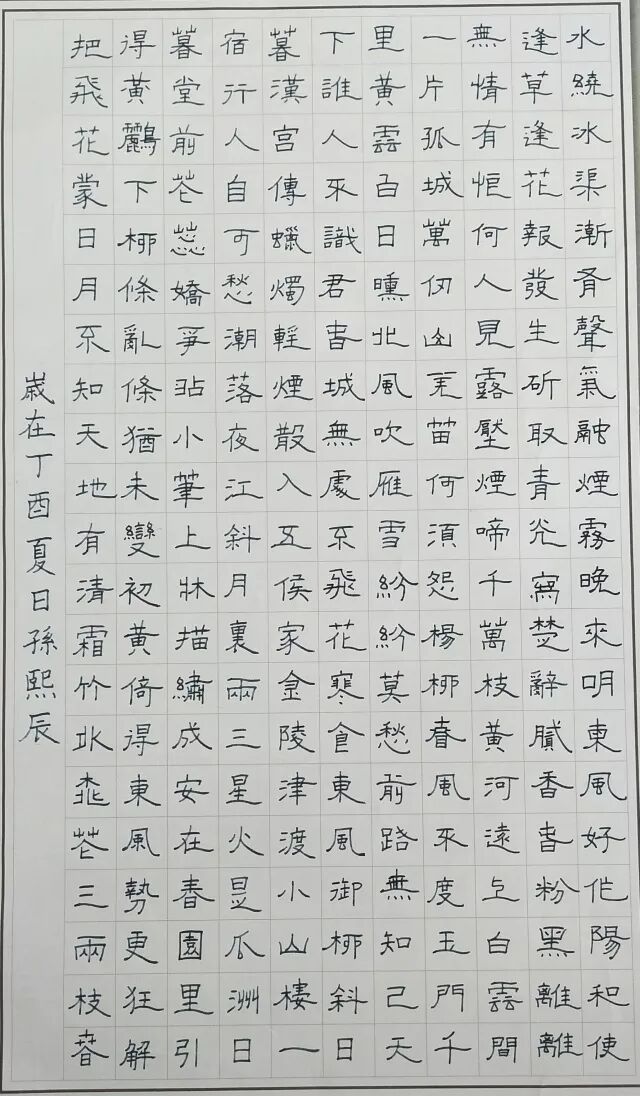 水繞冰渠漸有聲氣融煙霧晚來明東風好作陽和使
逢草逢花報發生斫取青光寫楚辭膩香春粉黑離離
無情有恨何人見露壓煙啼千萬枝黃河遠上白雲間
一片孤城萬仞山羌笛何須怨楊柳春風不度玉門千
里黃雲白日曛北風吹雁雪紛紛莫愁前路無知己天
下誰人不識君春城無處不飛花寒食東風御柳斜日
暮漢宮傳蠟燭輕煙散入五侯家金陵津渡小山樓一
宿行人自可愁潮落夜江斜月裏兩三星火是瓜洲日
暮堂前花蕊嬌爭拈小筆上牀描繡成安在春園里引
得黃鸝下柳條亂條猶未變初黃倚得東風勢更狂解
把飛花蒙日月不知天地有清霜竹外桃花三兩枝春
歲在丁酉夏日孫熙辰